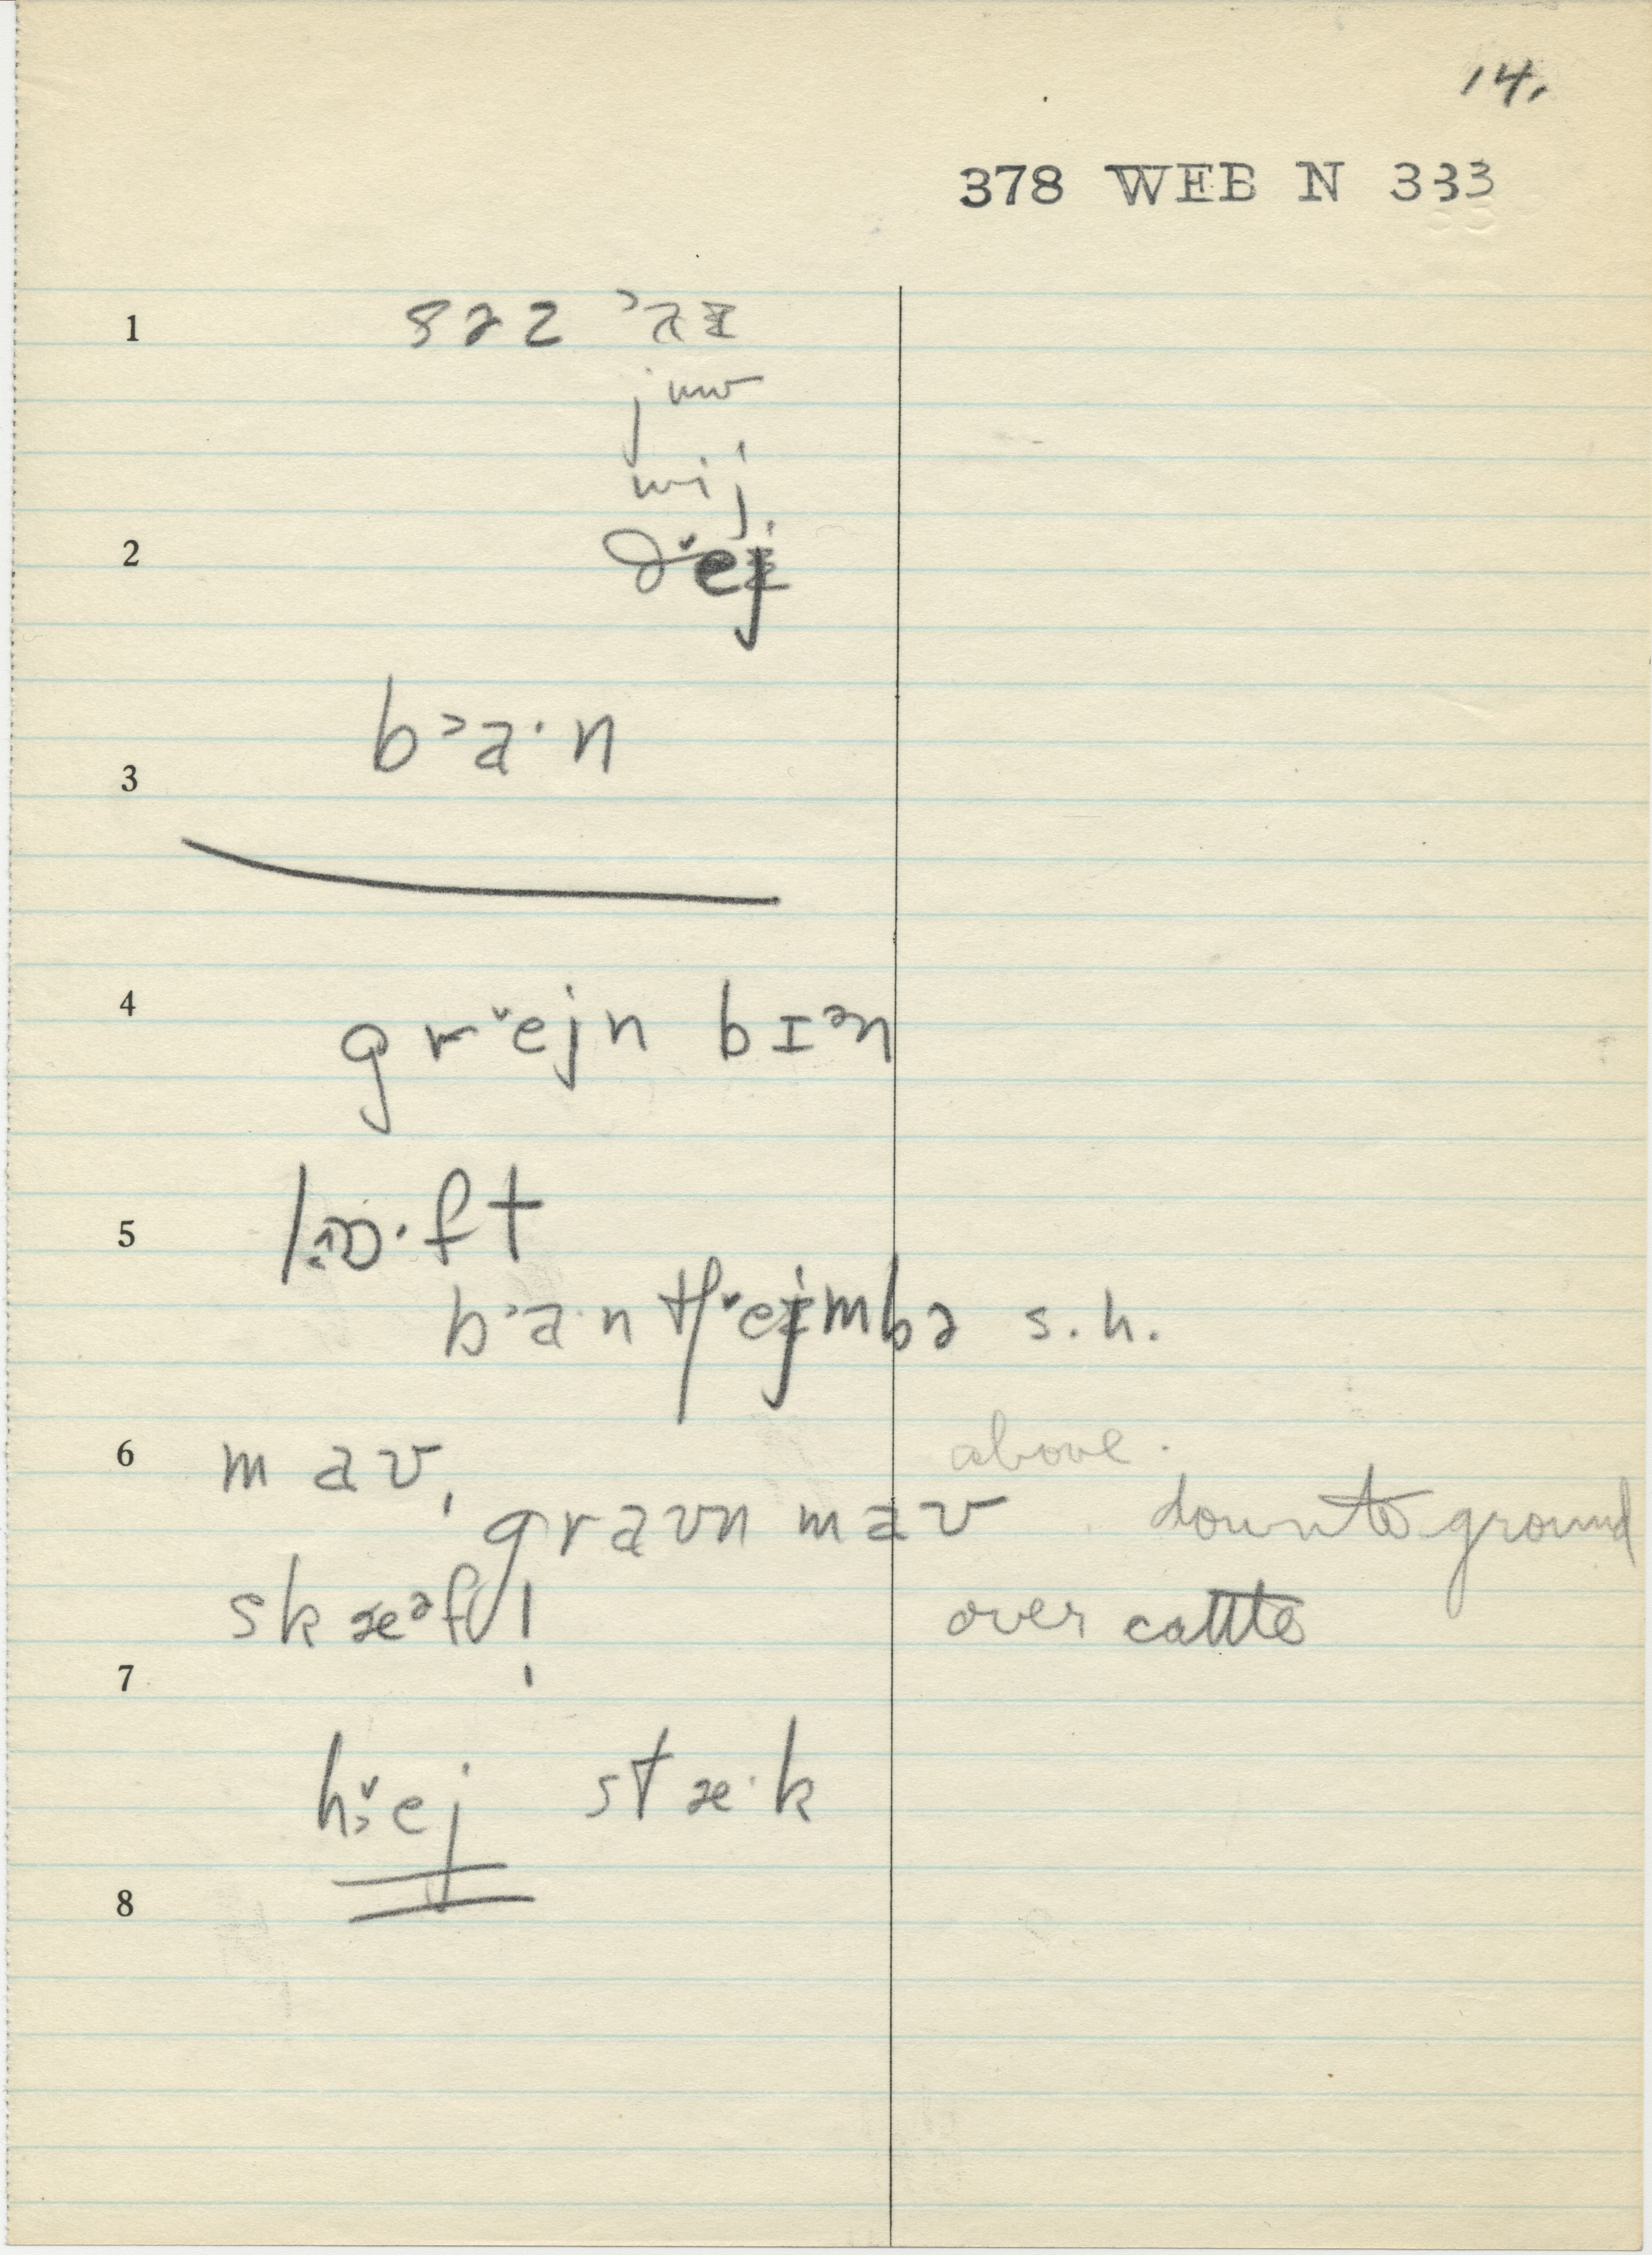 14.
378 WEB N 333
1
juw
wij
2 ðˇej
b˃a·n
3
4 grˇejn bɪᵊn
5 ft
b˃a·n tʃˇejmbə s.h.
6 mav, above.
gravn mav down to ground
skæᵊfl! over cattle
7
hˇej stæ·k
8